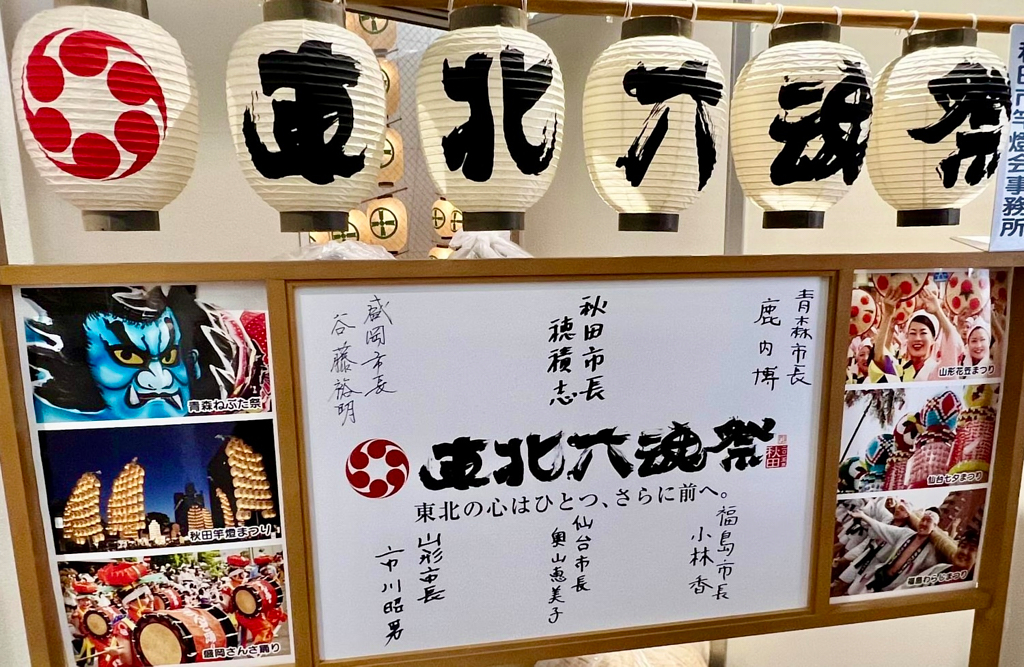 東北六魂祭
秋田市竿燈会事務所
青森ねぶた祭
秋田竿燈まつり
盛岡さんさ踊り
青森市長
鹿内博
秋田市長
穂積志
盛岡市長
谷藤裕明
東北六魂祭
秋田
東北の心はひとつ、さらに前へ。
福島市長
小林香
仙台市長
奥山恵美子
山形市長
市川昭男
山形花笠まつり
仙台七夕まつり
福島わらじまつり